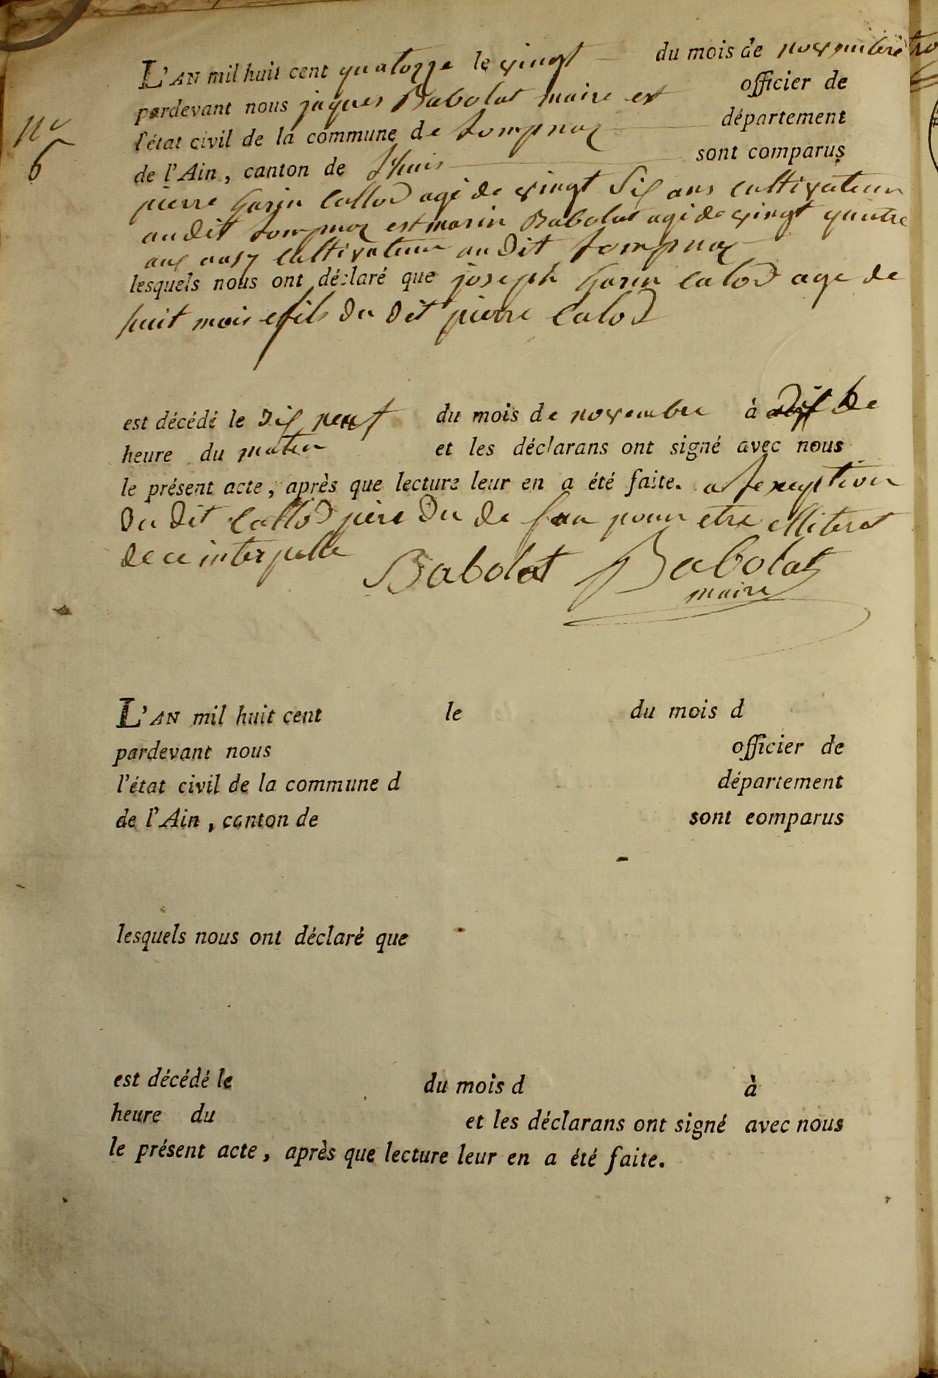 L'AN mil huit cent quatorze le vingt du mois de novembre
pardevant nous jaques Babolat maire et officier de
l'état civil de la commune de Lompnaz département
de l'Ain, canton de Lhuis sont comparus
N°
6
pierre Garin Callod agé de vingt six ans cultivateur
audit Lompnaz et marin Babolat agé de vingt quatre
ans cultivateur au dit Lompnaz
lesquels nous ont déclaré que joseph Garin Calod age de
huit mois fils du dit pierre Calod
est décédé le dix neuf du mois de novembre à de
heure du matin et les déclarans ont signé avec nous
le présent acte, après que lecture leur en a été faite. a l'exeption
du dit Callod pere du de pour etre illiteret
de ce interpelle Babolat Babolat
maire
L'AN mil huit cent le du mois d
pardevant nous officier de
l'état civil de la commune d département
de l'Ain, canton de sont comparus
lesquels nous ont déclaré que
est décédé le du mois d à
heure du et les déclarans ont signé avec nous
le présent acte, après que lecture leur en a été faite.